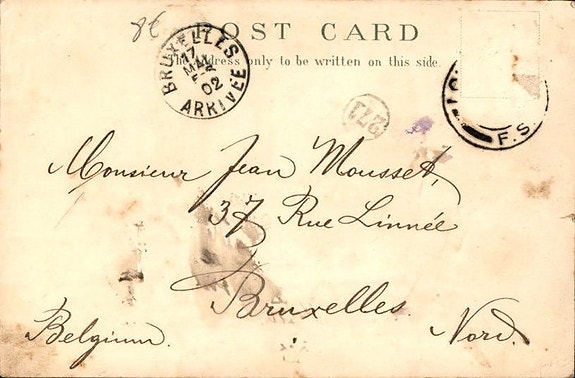 POST CARD
The address only to be written on this side.
BRUXELLES
17
MAI
02
ARRIVÉE
271
F.S.
Monsieur Jean Mousset,
37 Rue Linnée
Bruxelles.
Belgium. Nord.